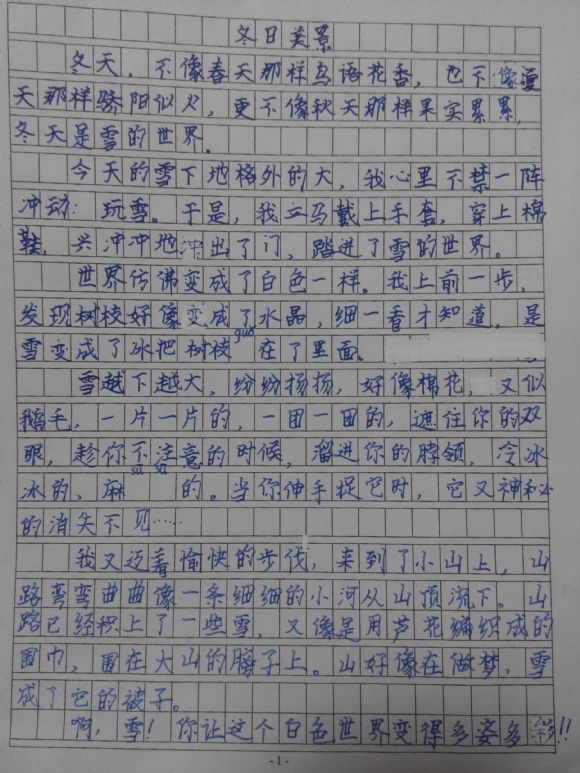 冬日美景
冬天，不像春天那样鸟语花香，也不像夏
天那样骄阳似火，更不像秋天那样果实累累，
冬天是雪的世界。
今天的雪下地格外的大，我心里不禁一阵
冲动：玩雪。于是，我立马戴上手套，穿上棉
鞋，兴冲冲地冲出了门，踏进了雪的世界。
世界仿沸变成了白色一样。我上前一步，
发现树枝好像变成了水晶，细一看才知道，是
guǒ
雪变成了冰把树枝 在了里面。
雪越下越大，纷纷扬扬，好像棉花，又似
鹅毛，一片一片的，一团一团的，遮住你的双
眼，趁你不注意的时候，溜进你的脖领，冷冰
sū sū
冰的，麻 的。当你伸手捉它时，它又神秘
的消失不见……
我又迈着愉快的步伐，来到了小山上，山
路弯弯曲曲像一条细细的小河从山顶流下。山
路已经积上了一些雪，又像是用芦花编织成的
围巾，围在大山的脖子上。山好像在做梦，雪
成了它的被子。
啊，雪！你让这个白色世界变得多姿多彩！！
-1-